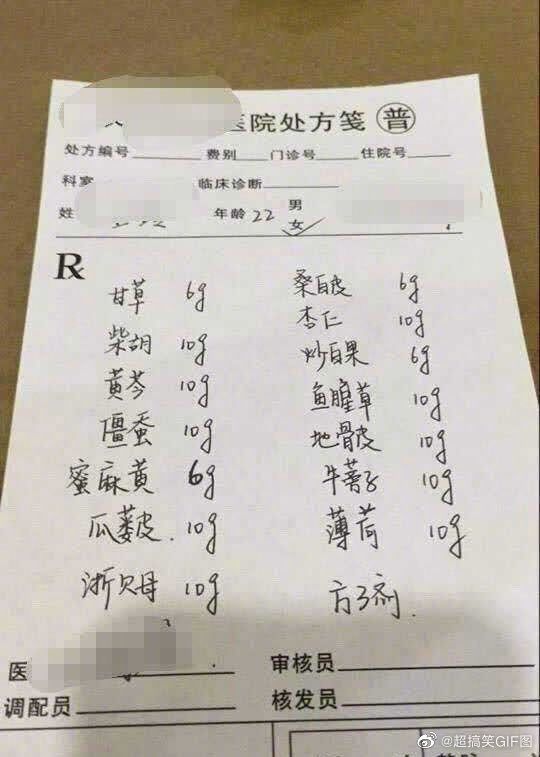 医院处方笺 普
处方编号 费别 门诊号 住院号
科室 临床诊断
姓 年龄 22 男
女
R
甘草 6g
柴胡 10g
黄芩 10g
僵蚕 10g
蜜麻黄 6g
瓜蒌皮 10g
浙贝母 10g
桑白皮 6g
杏仁 10g
炒白果 6g
鱼腥草 10g
地骨皮 10g
牛蒡子 10g
薄荷 10g
方3剂
医 审核员
调配员 核发员
@超搞笑GIF图